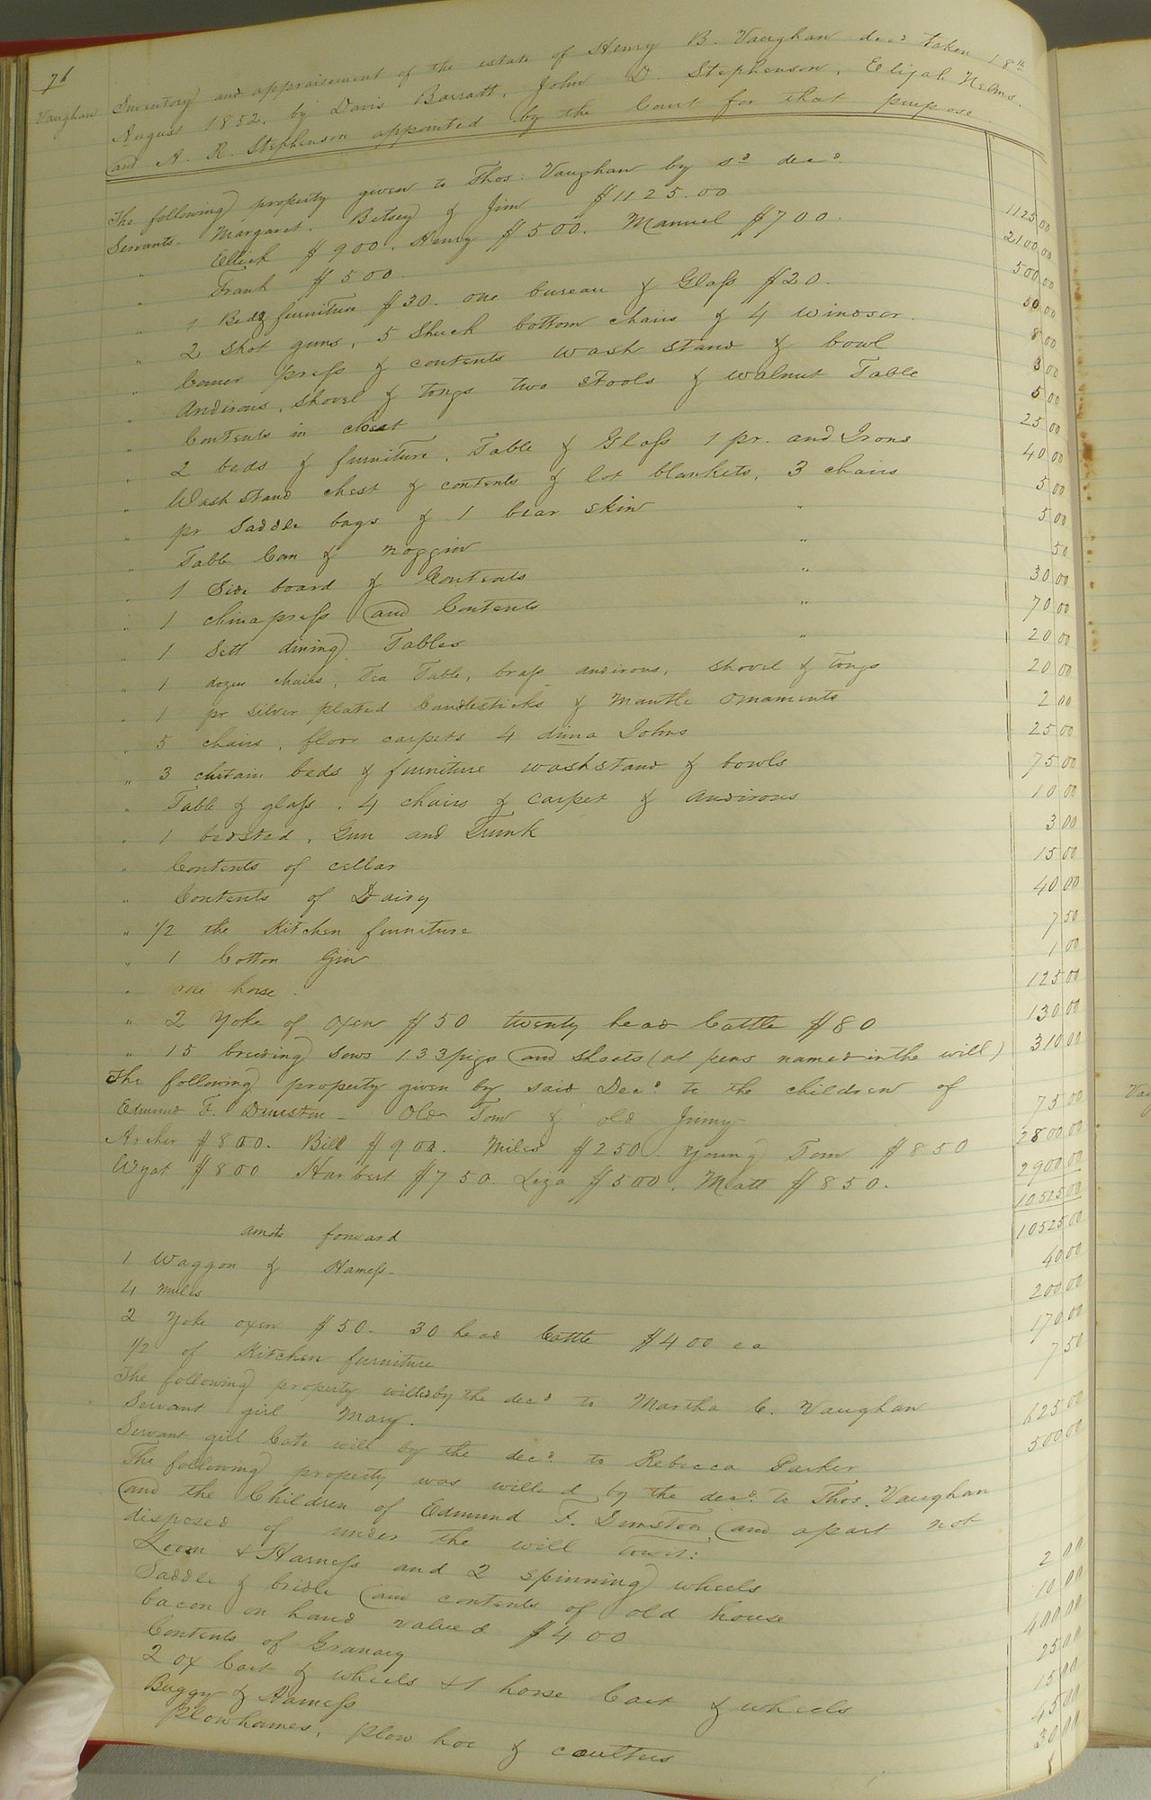 76
Vaughan Inventory and appraisement of the estate of Henry B. Vaughan decd taken 18th
August 1852. by Davis Barratt, John D. Stephenson, Elijah Nelms.
and A. R. Stephenson appointed by the Court for that purpose
The following property given to Thos: Vaughan by sd decd.
Servants. Margaret. Betsey & Jim $1125.00 1125 00
" $900. Henry $500. Manuel $700. 2100 00
" Frank $500. 500 00
" 1 Bed & furniture $30. one bureau & Glass $20. 50 00
" 2 Shot guns, 5 Shuck bottom chairs & 4 windsor. 8 00
" Corner press & contents wash stand & bowl 3 00
" Andirons, shovel & tongs two stools & walnut Table 5 00
" Contents in chest 25 00
" 2 beds & furniture, Table & Glass 1 pr. and Irons 40 00
" Wash stand chest & contents & lot blankets, 3 chairs 5 00
" pr Saddle bags & 1 bear skin " 5 00
" Table Can & noggin " 50
" 1 Side board & Contents " 30 00
" 1 china press and Contents " 70 00
" 1 Sett dining Tables " 20 00
" 1 dozen chairs, Tea Table, brass andirons, shovel & tongs 20 00
" 1 pr silver plated Candlesticks & Mantle ornaments 2 00
" 5 chairs, floor carpets 4 dima Johns 25 00
" 3 curtain beds & furniture washstand & bowls 75 00
" Table & glass, 4 chairs & carpet & andirons 10 00
" 1 bedsted, Gun and Trunk 3 00
" Contents of cellar 15 00
" Contents of Dairy 40 00
" 1/2 the Kitchen furniture 7 50
" 1 Cotton Gin 1 00
" one horse. 125 00
" 2 Yoke of oxen $50 twenty head Cattle $80 130 00
" 15 breeding Sows 133 pigs and shoats (at pens named in the will) 310 00
The following property given by said Decd to the children of
Edmund F. Dunston - Old Tom & old Jimmy 75 00
Archer $800. Bill $900. Miles $250. Young Tom $850 2800 00
Wyat $800 Harbert $750. Liza $500. Matt $850. 2900 00
10525 00
amts forward 10525 00
1 Waggon & Harness. 40 00
4 mules 200 00
2 Yoke oxen $50. 30 head Cattle $4 00 ea 170 00
1/2 of Kitchen furniture 7 50
The following property willed by the decd to Martha C. Vaughan
Servant girl Mary. 625 00
Servant girl Cate will by the decd to Rebecca Parker 500 00
The following property was willed by the decd. to Thos. Vaughan
and the Children of Edmund F. Dunston, and apart not
disposed of under the will towit:
Loom & Harness and 2 spinning wheels 2 00
Saddle & bridle and contents of old house 10 00
bacon on hand valued $400 400 00
Contents of Granary 25 00
2 ox Cart & wheels & 1 horse Cart & wheels 15 00
Buggy & Harness 45 00
Plowhames, Plow hoe & coulters 30 00